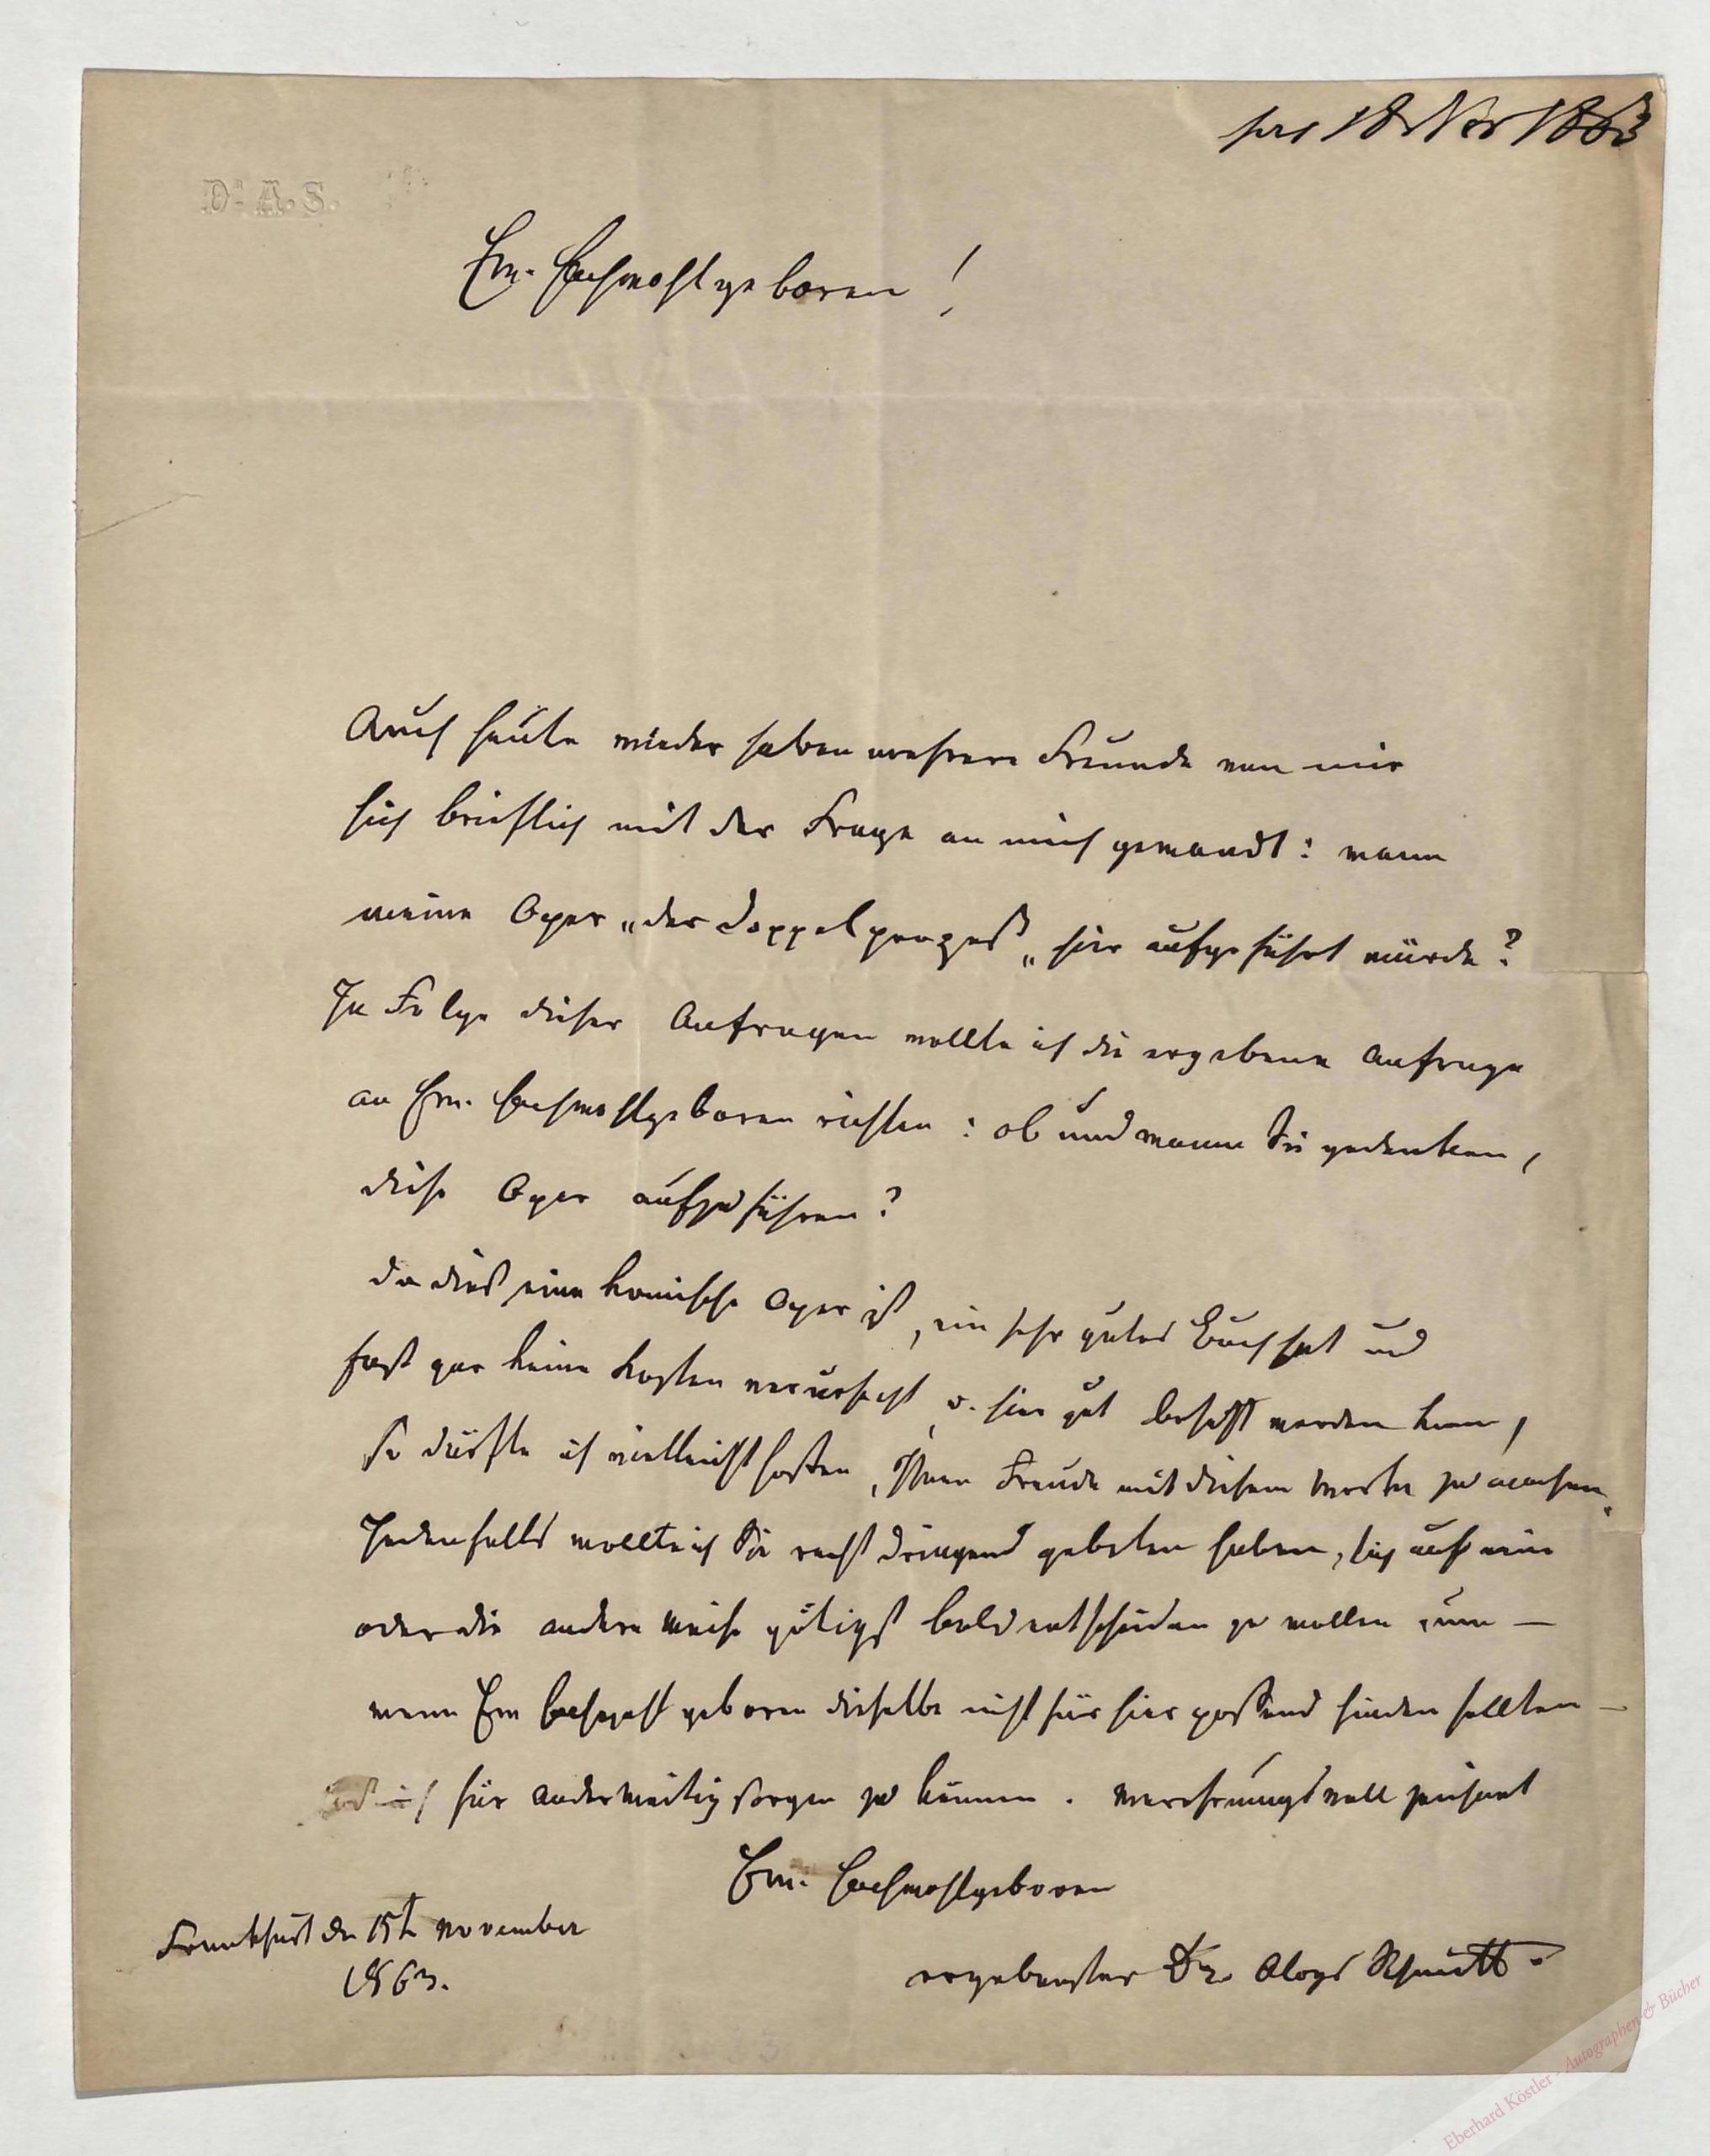 18 Nov 1863
Dr. A. S.
Ew. Hochwohlgeboren!
Auch heute wieder haben mehrere Freunde von mir
sich brieflich mit der Frage an mich gewandt: wann
meine Oper „der Doppelprozeß„ hier aufgeführt würde?
In Folge dieser Anfragen wollte ich die ergebene Anfrage
an Ew. Hochwohlgeboren richten: ob und wann Sie gedenken,
diese Oper aufzuführen?
Da dieß eine komische Oper ist, ein sehr gutes Buch hat und
fast gar keine Kosten verursacht, u. hier gut besetzt werden kann,
so dürfte ich vielleicht hoffen, Ihnen Freude mit diesem Werke zu machen.
Jedenfalls wollte ich Sie recht dringend gebeten haben, sich auf eine
oder die andere Weise gütigst bald entscheiden zu wollen, um —
wenn Ew Hochwohlgeboren dieselbe nicht für hier passend finden sollten —
für anderweitig sorgen zu können. Verehrungsvoll zeichnet
Ew. Hochwohlgeboren
Frankfurt den 15t November
1863.
ergebenster Dr. Aloys Schmitt.
Eberhard Köstler - Autographen & Bücher